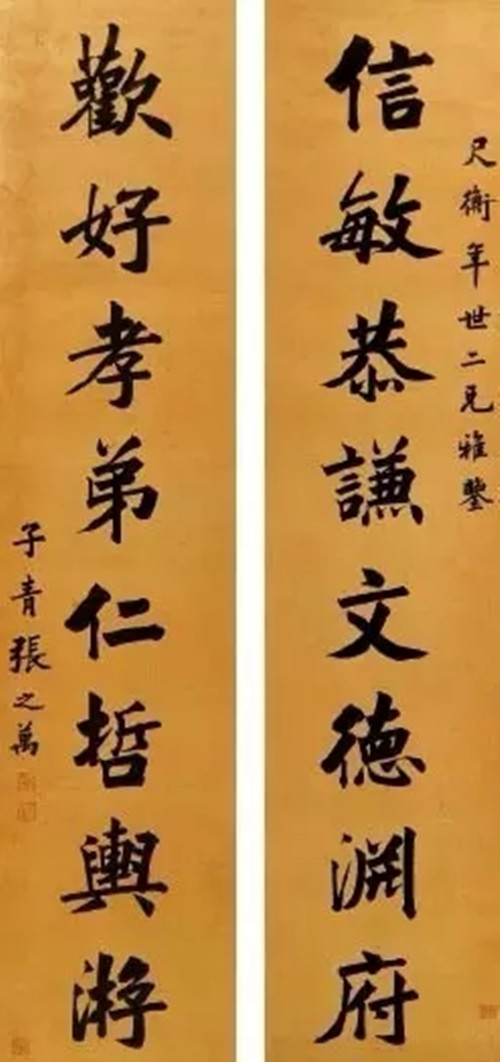 尺衡年世二兄雅鑒
信敏恭謙文德淵府
歡好孝弟仁哲與游
子青張之萬